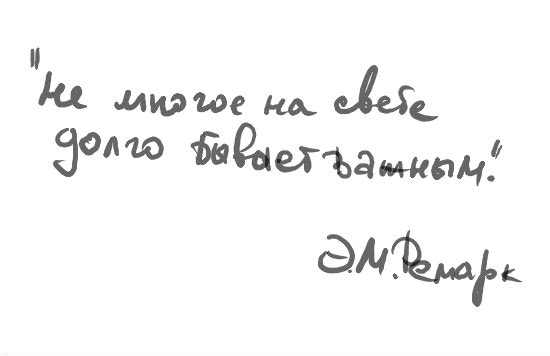 "Не многое на свете
долго бывает важным."
Э.М. Ремарк